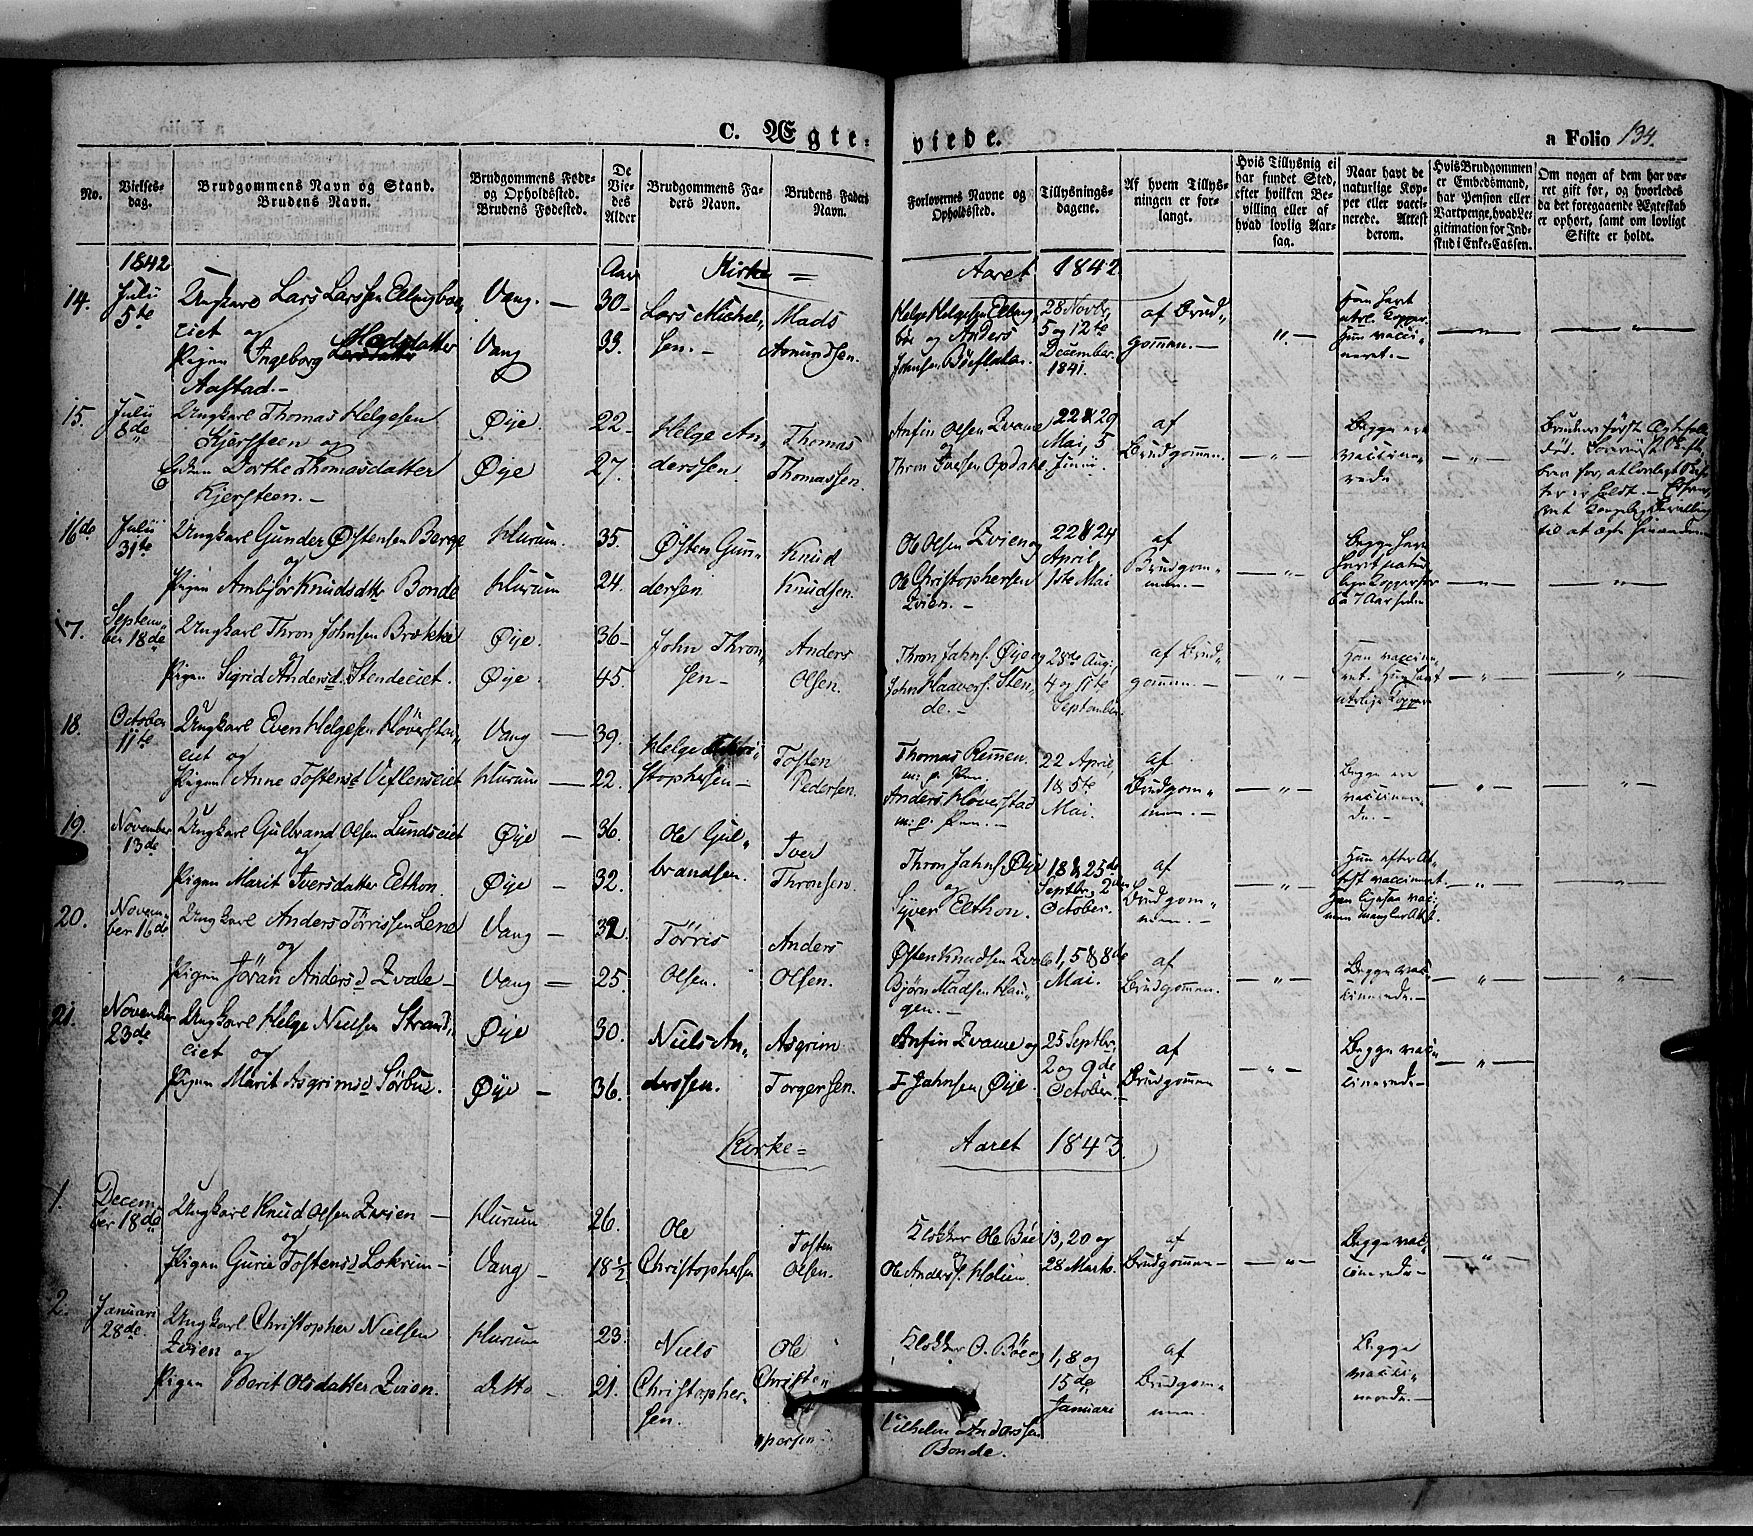 C. Ægteviede.
a Folio 134.
No.
Vielses-
dag.
Brudgommens Navn og Stand.
Brudens Navn.
Brudgommens Føde-
og Opholdssted.
Brudens Fødested.
De
Vie-
des
Alder
Brudgommens Fa-
ders Navn.
Brudens Faders
Navn.
Forlovernes Navne og
Opholdssted.
Tillysnings-
dagene.
Af hvem Tillys-
ningen er for-
langt.
Hvis Tillysnig ei
har fundet Sted,
efter hvilken Be-
villing eller af
hvad lovlig Aar-
sag.
Naar havt de
naturlige Kop-
per eller vacci-
nerede. Attest
derom.
Hvis Brudgommen
er Embedsmand,
har Pension eller
Vartpenge, hvad Le-
gitimation for Ind-
skud i Enke-Cassen.
Om nogen af dem har væ-
ret gift før, og hvorledes
da det foregaaende Ægteskab
er ophørt, samt om lovligt
Skifte er holdt.
1842
Aar
Kirke =
Aaret 1842
14.
Julii
5te
Ungkarl Lars Larssen Ellingboe„
eiet og
Pigen Ingeborg Madsdatter
Aastad.–
Vang. –
Vang
30–
33.
Lars Michel„
sen.–
Mads
Asmundsen.
Helge Helgesen Elling„
boe og Anders
Johnsen Böeflaten.
28 Novbr,
5 og 12te
December
1841.
af Brud„
gommen.–
15.
Julii
8de
Ungkarl Thomas Helgesen
Kjersteen og
Enken Dorthe Thomasdatter
Kjersteen.–
Øye.
Øye
22–
27.
Helge An„
derssen
Thomas
Thomassen.
Anfin Olsen Qvame
og
Thron Iversen Opdahl
22 & 29
Mai, 5
Junii.
af
Brudgommen.
Begge ere
vaccine„
rede
16de
Julii
31te
Ungkarl Gunder Østensen Berge
og
Pigen Ambjør Knudsdtr Bonde
Hurum.
Hurum
35.
24.
Østen Gun„
dersen
Knud
Knudsen.
Ole Olsen Qvien og
Ole Christophersen
Qvien.–
22 & 24
April
1ste Mai
af
Brudgom„
men.–
17.
Septem„
ber 18de
Ungkarl Thron Johnsen Brække
og
Pigen Sigrid Andersd. Stendeeiet.
Øye.
Øye.
36–
45.
John Thron„
sen–
Anders
Olsen.
Thron Jahns. Øye og
John Haavers. Sten„
de.–
28de Aug:
4 og 11te
September.
af Brud„
gommen.–
18.
October
11te
Ungkarl Even Helgesen Höverstad„
eiet og
Pigen Anne Tostensd Veflenseiet
Vang –
Hurum –
39.
22.
Helge Chri„
stophersen–
Tosten
Pedersen.
Thomas Remen.
m. p. Pen.
Anders Höverstad
m. p. Pen.–
22 April,
1 & 5te
Mai.
af
Brudgom„
men.–
Begge ere
vaccinere„
de.–
19.
November
13de
Ungkarl Gulbrand Olsen Lundseiet
og
Pigen Marit Iversdatter Elthon.
Øye –
Øye –
36.
32.
Ole Gul„
brandsen.
Iver
Thronsen.
Thron Jahns. Øye
og
Syver Elthon.
18 & 25de
Septbr, 2den
October.
af
Brudgom„
men.–
20.
Novem„
ber 16de
Ungkarl Anders Törrissen Lene
og
Pigen Jöran Andersd Qvale–
Vang –
Vang =
32.
25.
Törris
Olsen.
Anders
Olsen.
Østen Knudsen Qvale
Bjørn Madsen Hau„
gen.–
1, 5 & 8de
Mai.
af
Brudgommen.
Begge vac„
cinerede.–
21.
November
23de
Ungkarl Helge Nielsen Strand„
eiet og
Pigen Marit Asgrimsd Sörbue.
Øye
Øye –
30.
36.
Niels An„
derssen.
Asgrim
Torgersen.
Anfin Qvame og
T. Jahnsen Øye.
25 Septbr,
2 og 9de
October.–
af
Brudgommen
Begge vac„
cinerede–
Kirke =
Aaret 1843.
1.
Decem„
ber 18de
Ungkarl Knud Olsen Qvien –
og
Pigen Gurie Tostensd Lokrim–
Hurum
Vang –
26.
18½
Ole
Christophersen
Tosten
Olsen.
Klokker Ole Böe
Ole Anders. Holien.
13, 20 og
28 Marts.
af
Brudgommen–
Begge vac„
cinerede–
2.
Januari
28de.
Ungkarl Christopher Nielsen
Qvien og
Pigen Berit Olsdatter Qvien.
Hurum
ditto –
23.
21.
Niels
Christopher-
sen.
Ole
Christo„
phersen
Klokker O. Böe og
Vilhelm Anderssen
Bonde.
1, 8 og
15de
Januari
af
Brudgom„
men.
Begge
vacci„
nerede–